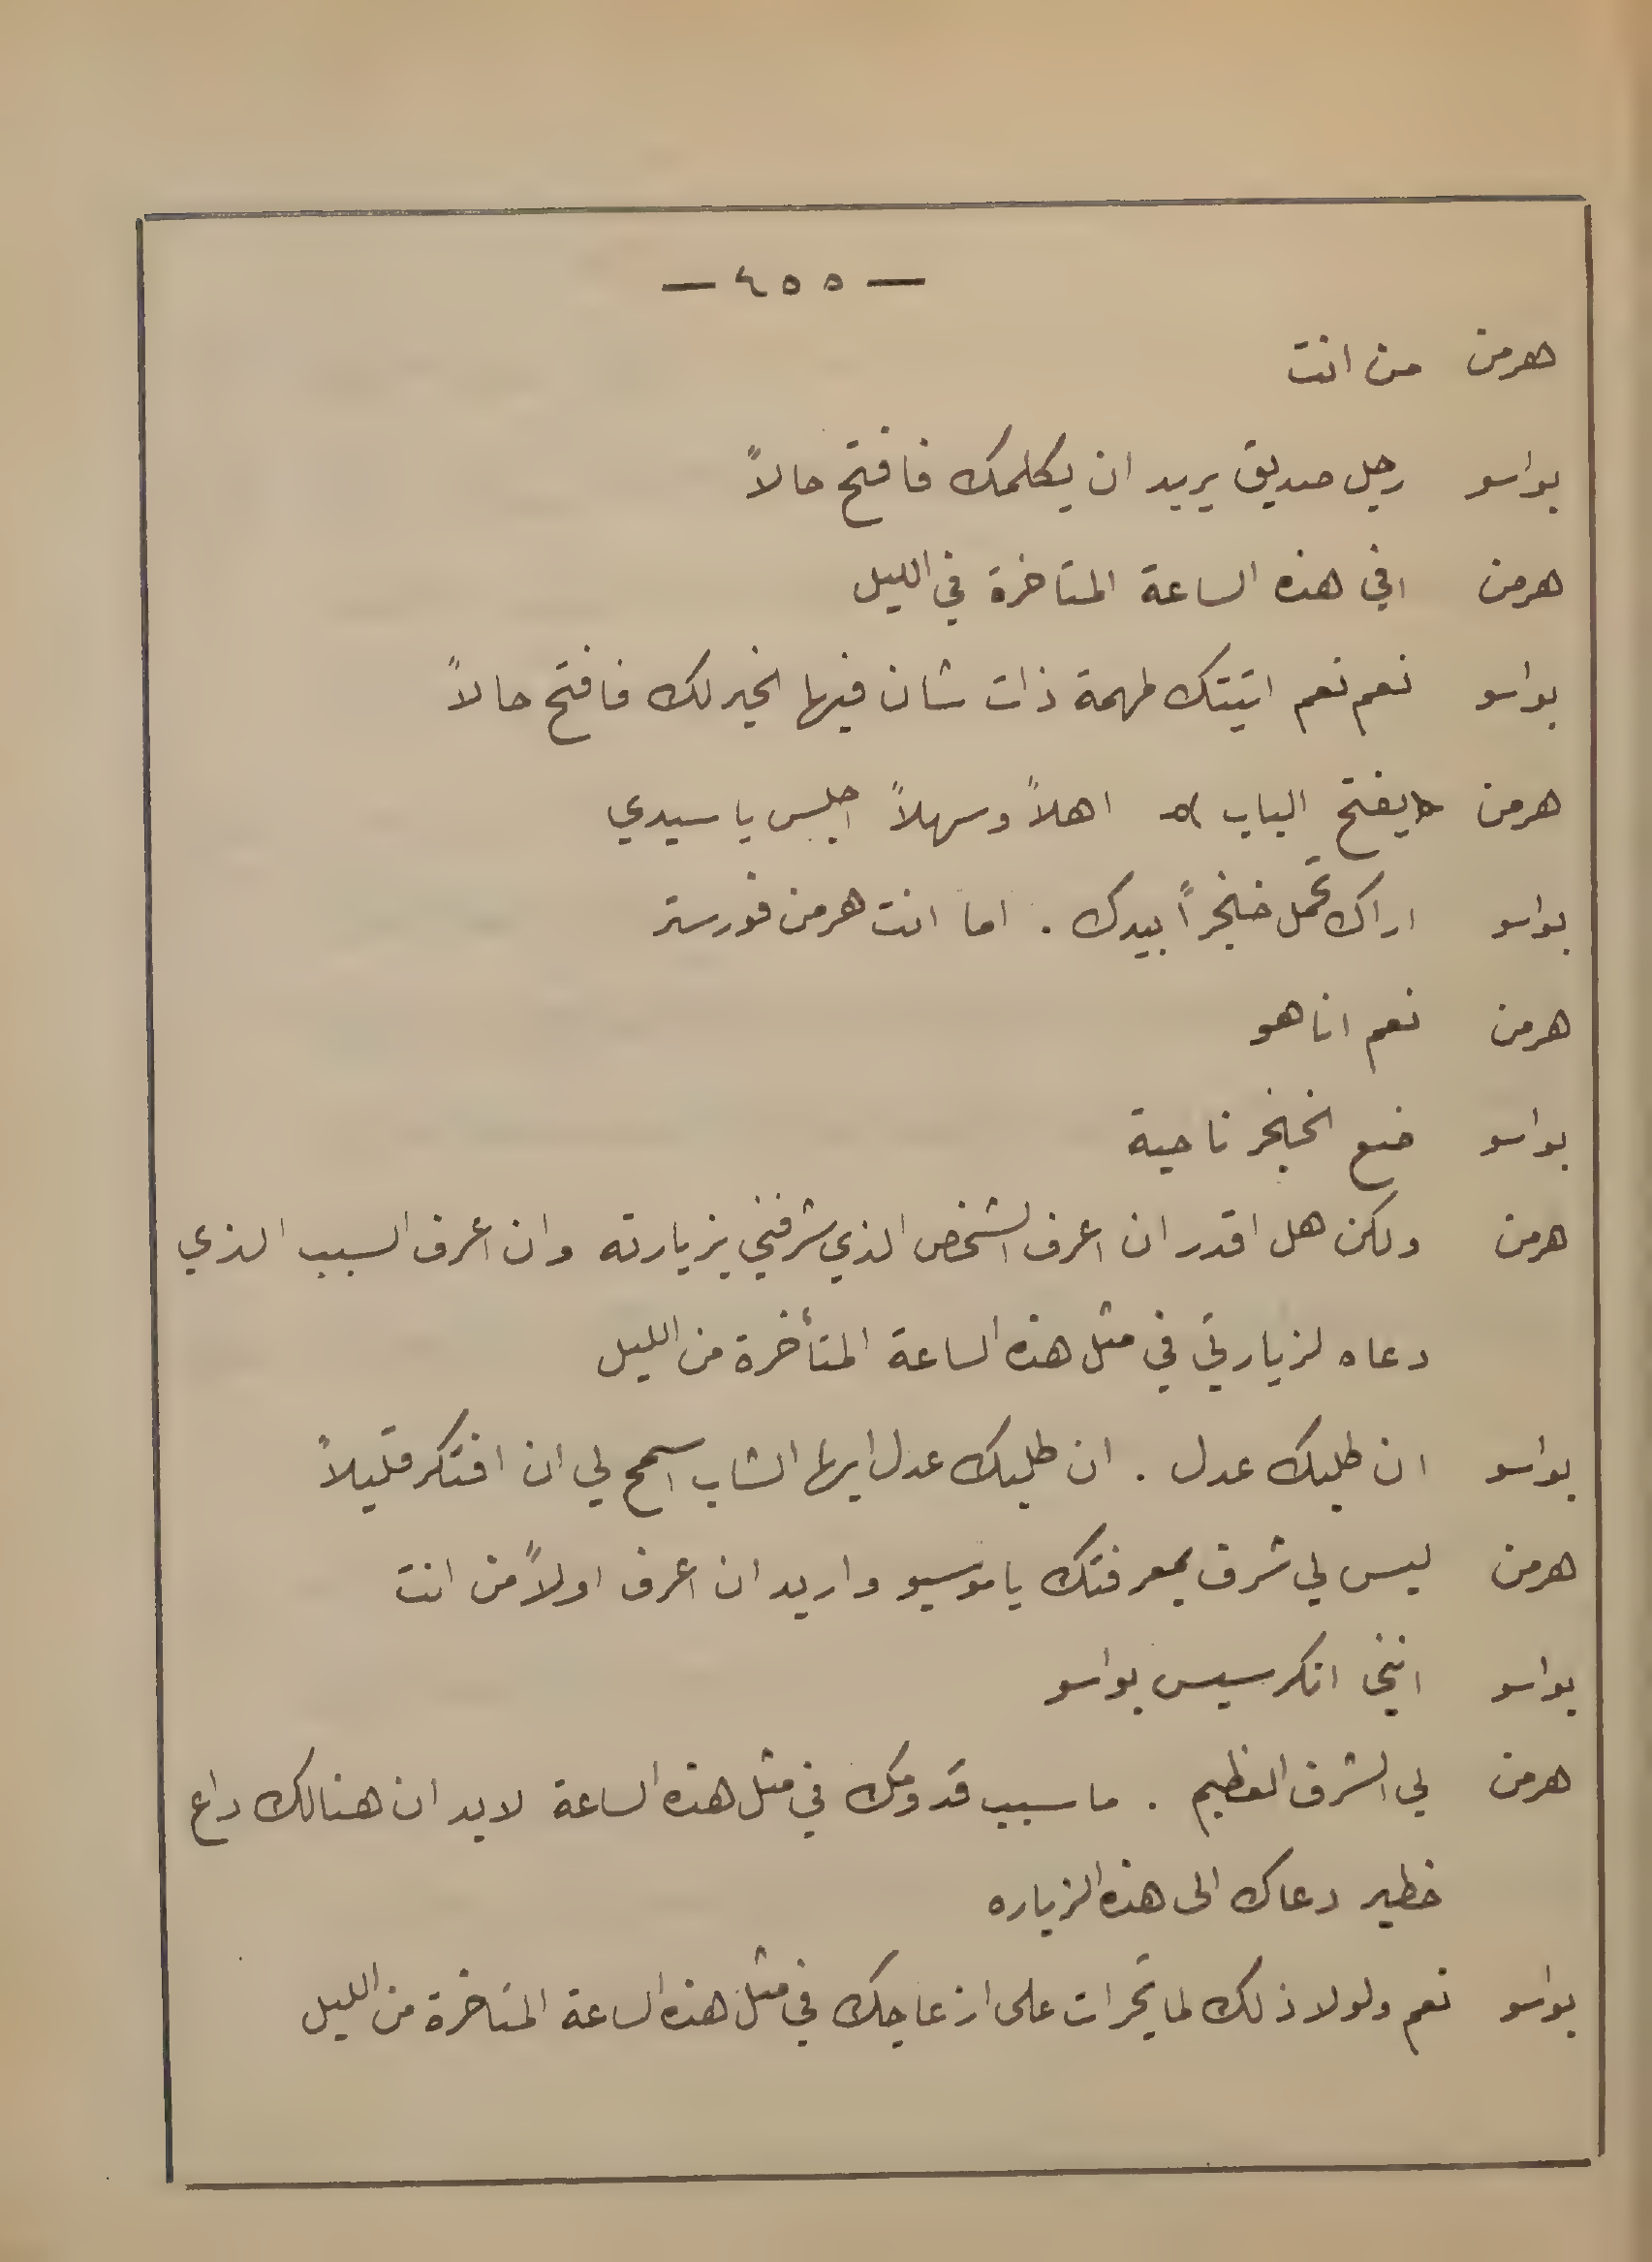 — ٤٥٥ —
هرمن من انت
بواسو رجل صديق يريد ان يكلمك فافتح حالاً
هرمن افي هذه الساعة المتاخرة في الليل
بواسو نعم نعم اتيتك لمهمة ذات شان فيها الخير لك فافتح حالاً
هرمن «يفتح الباب» اهلاً وسهلاً اجلس يا سيدي
بواسو اراك تحمل خنجراً بيدك . اما انت هرمن فورستر
هرمن نعم انا هو
بواسو ضع الخنجر ناحية
هرمن ولكن هل اقدر ان اعرف الشخص الذي شرفني بزيارته وان اعرف السبب الذي
دعاه لزيارتي في مثل هذه الساعة المتأخرة من الليل
بواسو ان طلبك عدل . ان طلبك عدل ايها الشاب اسمح لي ان افتكر قليلاً
هرمن ليس لي شرف بمعرفتك يا موسيو واريد ان اعرف اولاً من انت
بواسو انني انكرسيس بواسو
هرمن لي الشرف العظيم . ما سبب قدومك في مثل هذه الساعة لابد ان هنالك داع
خطير دعاك الى هذه الزياره
بواسو نعم ولولا ذلك لما تجرات على ازعاجك في مثل هذه الساعة المتاخرة من الليل